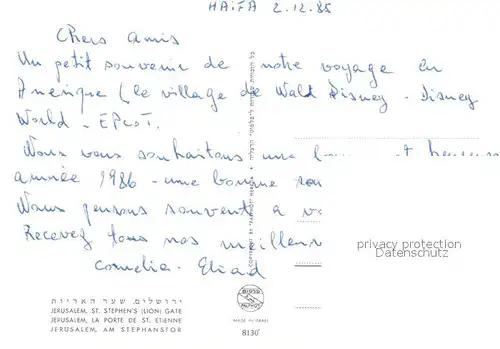 HAIFA 2.12.85
Chers amis
Un petit souvenir de notre voyage en
Amérique (le village de Wald Disney - Disney
World - EPCOT.
Nous vous souhaitons une et heureuse
année 1986 - une bonne
Nous pensons souvent a
Recevez tous nos meilleurs
Cornelia - Eliad
privacy protection
Datenschutz
ירושלים, שער האריות
JERUSALEM, ST. STEPHEN'S (LION) GATE
JERUSALEM, LA PORTE DE ST. ETIENNE
JERUSALEM, AM STEPHANSTOR
MADE IN ISRAEL
8130